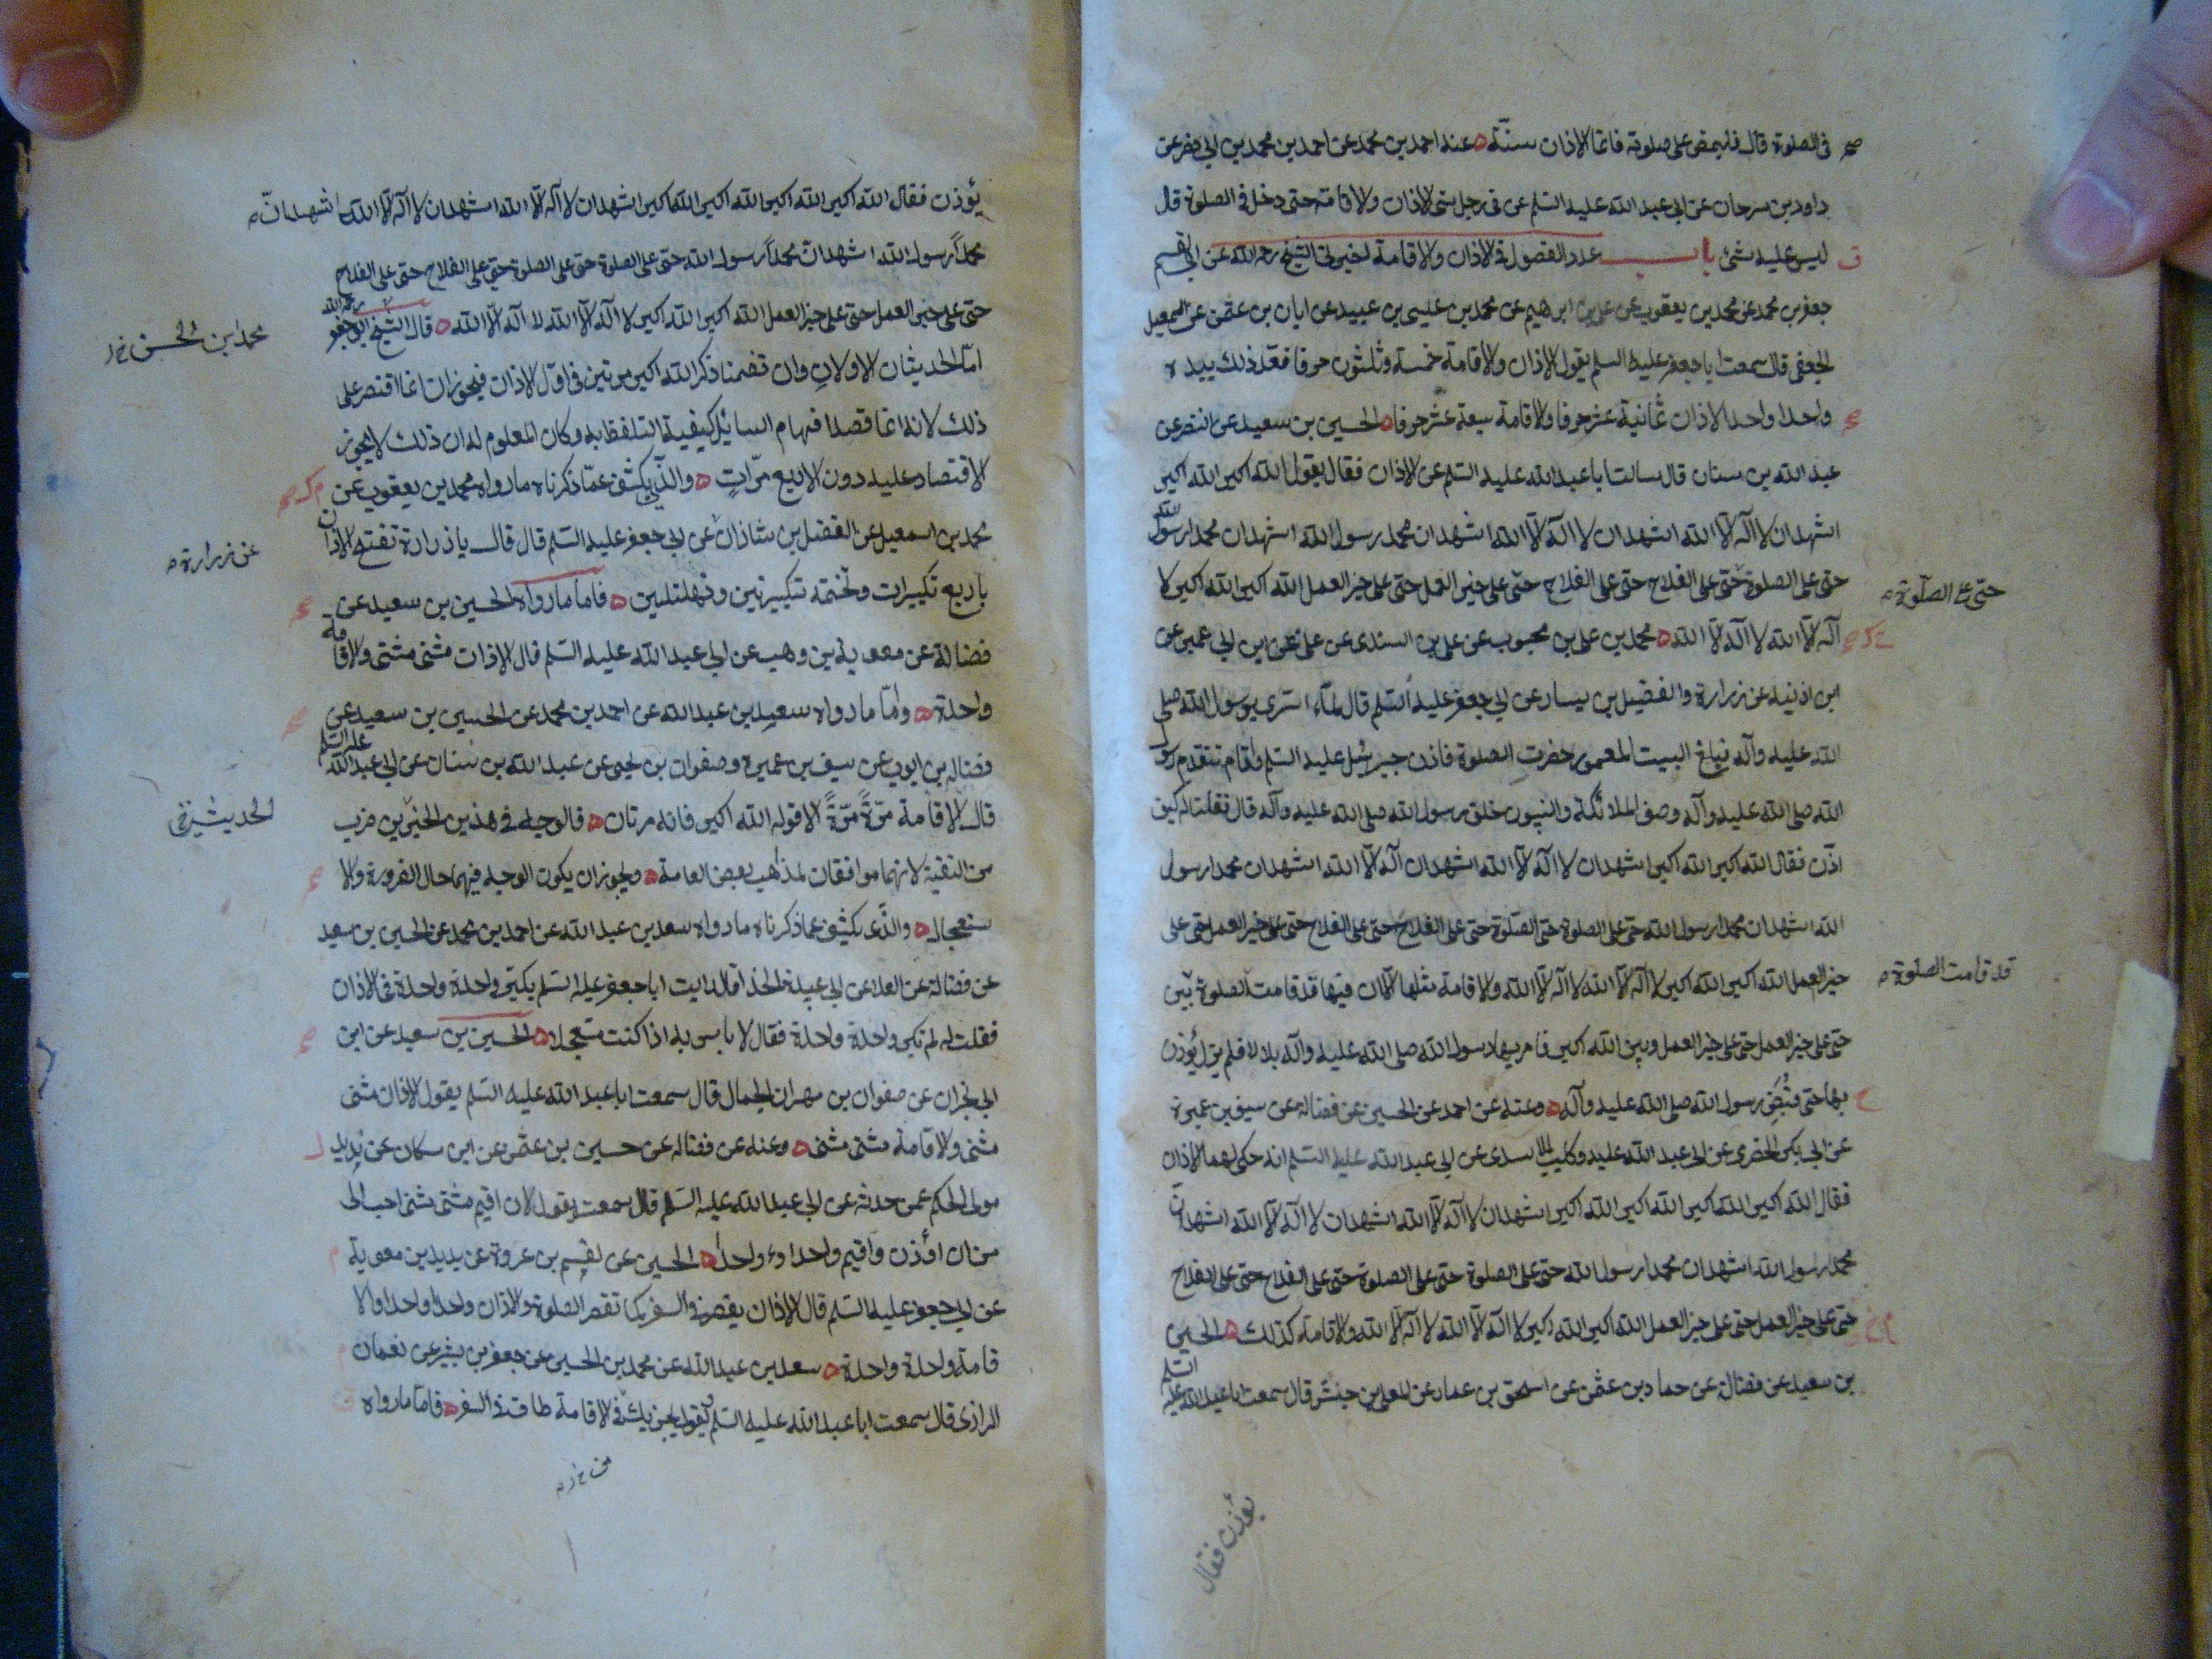 في الصلوة قال فليمض على صلوته فانما الاذان سنة عنه احمد بن محمد عن احمد بن محمد بن ابي نصر عن
داود بن سرحان عن ابي عبد الله عليه السلم عن في رجل نسى الاذان والاقامة حتى دخل في الصلوة قال
ليس عليه شئ باب عدد الفصول في الاذان والاقامة اخبرني الشيخ رحمه الله عن ابي القسم
جعفر بن محمد عن محمد بن يعقوب عن علي بن ابرهيم عن محمد بن عليسى بن عبيد عن ابان بن عثمن عن اسمعيل
الجعفي قال سمعت ابا جعفر عليه السلم يقول الاذان والاقامة خمسة وثلثون حرفا فعد ذلك بيده
واحدا واحدا الاذان ثمانية عشر حرفا والاقامة سبعة عشر حرفا الحسين بن سعيد عن النضر عن
عبد الله بن سنان قال سالت ابا عبد الله عليه السلم عن الاذان فقال يقول الله اكبر الله اكبر
اشهد ان لا اله الا الله اشهد ان لا اله الا الله اشهد ان محمد رسول الله اشهد ان محمدا رسول الله
حي على الصلوة حي على الفلاح حي على الفلاح حي على خير العمل حي على خير العمل الله اكبر الله اكبر لا
حي على الصلوة
اله الا الله لا اله الا الله محمد بن علي بن محبوب عن علي بن السندي عن علي عن ابن ابي عمير عن
ابن اذنيه عن زرارة والفضيل بن يسار عن ابي جعفر عليه السلم قال لما اسرى برسول الله صلى
الله عليه وآله فبلغ البيت المعمور حضرت الصلوة فاذن جبرئيل عليه السلم واقام فتقدم رسول
الله صلى الله عليه وآله وصف الملائكة والنبيون خلف رسول الله صلى الله عليه وآله قال فقلنا له كيف
اذن فقال الله اكبر الله اكبر اشهد ان لا اله الا الله اشهد ان اله الا الله اشهد ان محمدا رسول
الله اشهد ان محمدا رسول الله حي على الصلوة حي الصلوة حي على الفلاح حي على الفلاح حي على خير العمل حي على
خير العمل الله اكبر الله اكبر لا اله الا الله لا اله الا الله والاقامة مثلها الا ان فيها قد قامت الصلوة بين
قد قامت الصلوة
حي على خير العمل حي على خير العمل وبين الله اكبر فامر بها رسول الله صلى الله عليه وآله بلالا فلم يزل يؤذن
بها حتى قبض رسول الله صلى الله عليه وآله وعنه عن احمد عن الحسين عن فضالة عن سيف بن عميرة
عن ابي بكر الحضرمي عن ابي عبد الله عليه وكليب الاسدى عن ابي عبد الله عليه السلم انه حكى لهما الاذان
فقال الله اكبر الله اكبر الله اكبر الله اكبر اشهد ان لا اله الا الله اشهد ان لا اله الا الله اشهد ان
محمدا رسول الله اشهد ان محمدا رسول الله حي على الصلوة حي على الصلوة حي على الفلاح حي على الفلاح
حي على خير العمل حي على خير العمل الله اكبر الله اكبر لا اله الا الله لا اله الا الله والاقامة كذلك الحسين
بن سعيد عن فضالة عن حماد بن عثمن عن اسحق بن عمار عن المعلى بن خنيس قال سمعت ابا عبد الله عليه السلم
يؤذن فقال
يؤذن فقال الله اكبر الله اكبر الله اكبر الله اكبر اشهد ان لا اله الا الله اشهد ان لا اله الا الله اشهد ان
محمدا رسول الله اشهد ان محمدا رسول الله حي على الصلوة حي على الصلوة حي على الفلاح حي على الفلاح
حي على خير العمل حي على خير العمل الله اكبر الله اكبر لا اله الا الله لا اله الا الله قال الشيخ ابو جعفر رحمه الله
محمد ابن الحسن
اما الحديثان الاولان وان تضمنا ذكر الله اكبر مرتين في اول الاذان فيجوز ان انما اقتصر على
ذلك لانه انما قصد افهام السائل كيفية التلفظ به وكان المعلوم له ان ذلك لا يجوز
الاقتصاد عليه دون الاربع مرات والذي يكشف عما ذكرناه ما رواه محمد بن يعقوب عن
محمد بن اسمعيل عن الفضل بن شاذان عن ابي جعفر عليه السلم قال قال يا زرارة تفتتح الاذان
عن زرارة
باربع تكبيرات وتختمه بتكبيرتين وتهليلتين فاما ما رواه الحسين بن سعيد عن
فضالة عن معوية بن وهب عن ابي عبد الله عليه السلم قال الاذان مثنى مثنى والاقامة
واحدة واما ما رواه سعيد بن عبد الله عن احمد بن محمد عن الحسين بن سعيد عن
فضاله بن ايوب عن سيف بن عميرة وصفوان بن يحيى عن عبد الله بن سنان عن ابي عبد الله عليه السلم
قال الاقامة مرة مرة الا قوله الله اكبر فانه مرتان فالوجه في هذين الخبرين ضرب
من التقية لانهما موافقان لمذاهب بعض العامة ويجوز ان يكون الوجه فيهما حال الضرورة والا
ستعجال والذي يكشف عما ذكرناه ما رواه سعد بن عبد الله عن احمد بن محمد عن الحسين بن سعيد
عن فضالة عن العلا عن ابي عبيدة الحذا قال رايت ابا جعفر عليه السلم يكبر واحدة واحدة في الاذان
فقلت له لم تكبر واحدة واحدة فقال لا باس به اذا كنت مستعجلا الحسين بن سعيد عن ابن
ابي نجران عن صفوان بن مهران الجمال قال سمعت ابا عبد الله عليه السلم يقول الاذان مثنى
مثنى والاقامة مثنى مثنى وعنه عن فضاله عن حسين بن عثمن عن ابن مسكان عن يزيد
مولى الحكم عمن حدثه عن ابي عبد الله عليه السلم قال سمعته يقول لان اقيم مثنى مثنى احب الى
من ان اؤذن واقيم واحدا واحدا الحسين عن القسم بن عروة عن بريد بن معوية
عن ابي جعفر عليه السلم قال الاذان يقصر في السفر كما تقصر الصلوة والاذان واحدا واحدا والا
قامة واحدة واحدة سعد بن عبد الله عن محمد بن الحسين عن جعفر بن بشير عن نعمان
الرازى قال سمعت ابا عبد الله عليه السلم يقول يجزيك في الاقامة طاق في السفر فاما ما رواه